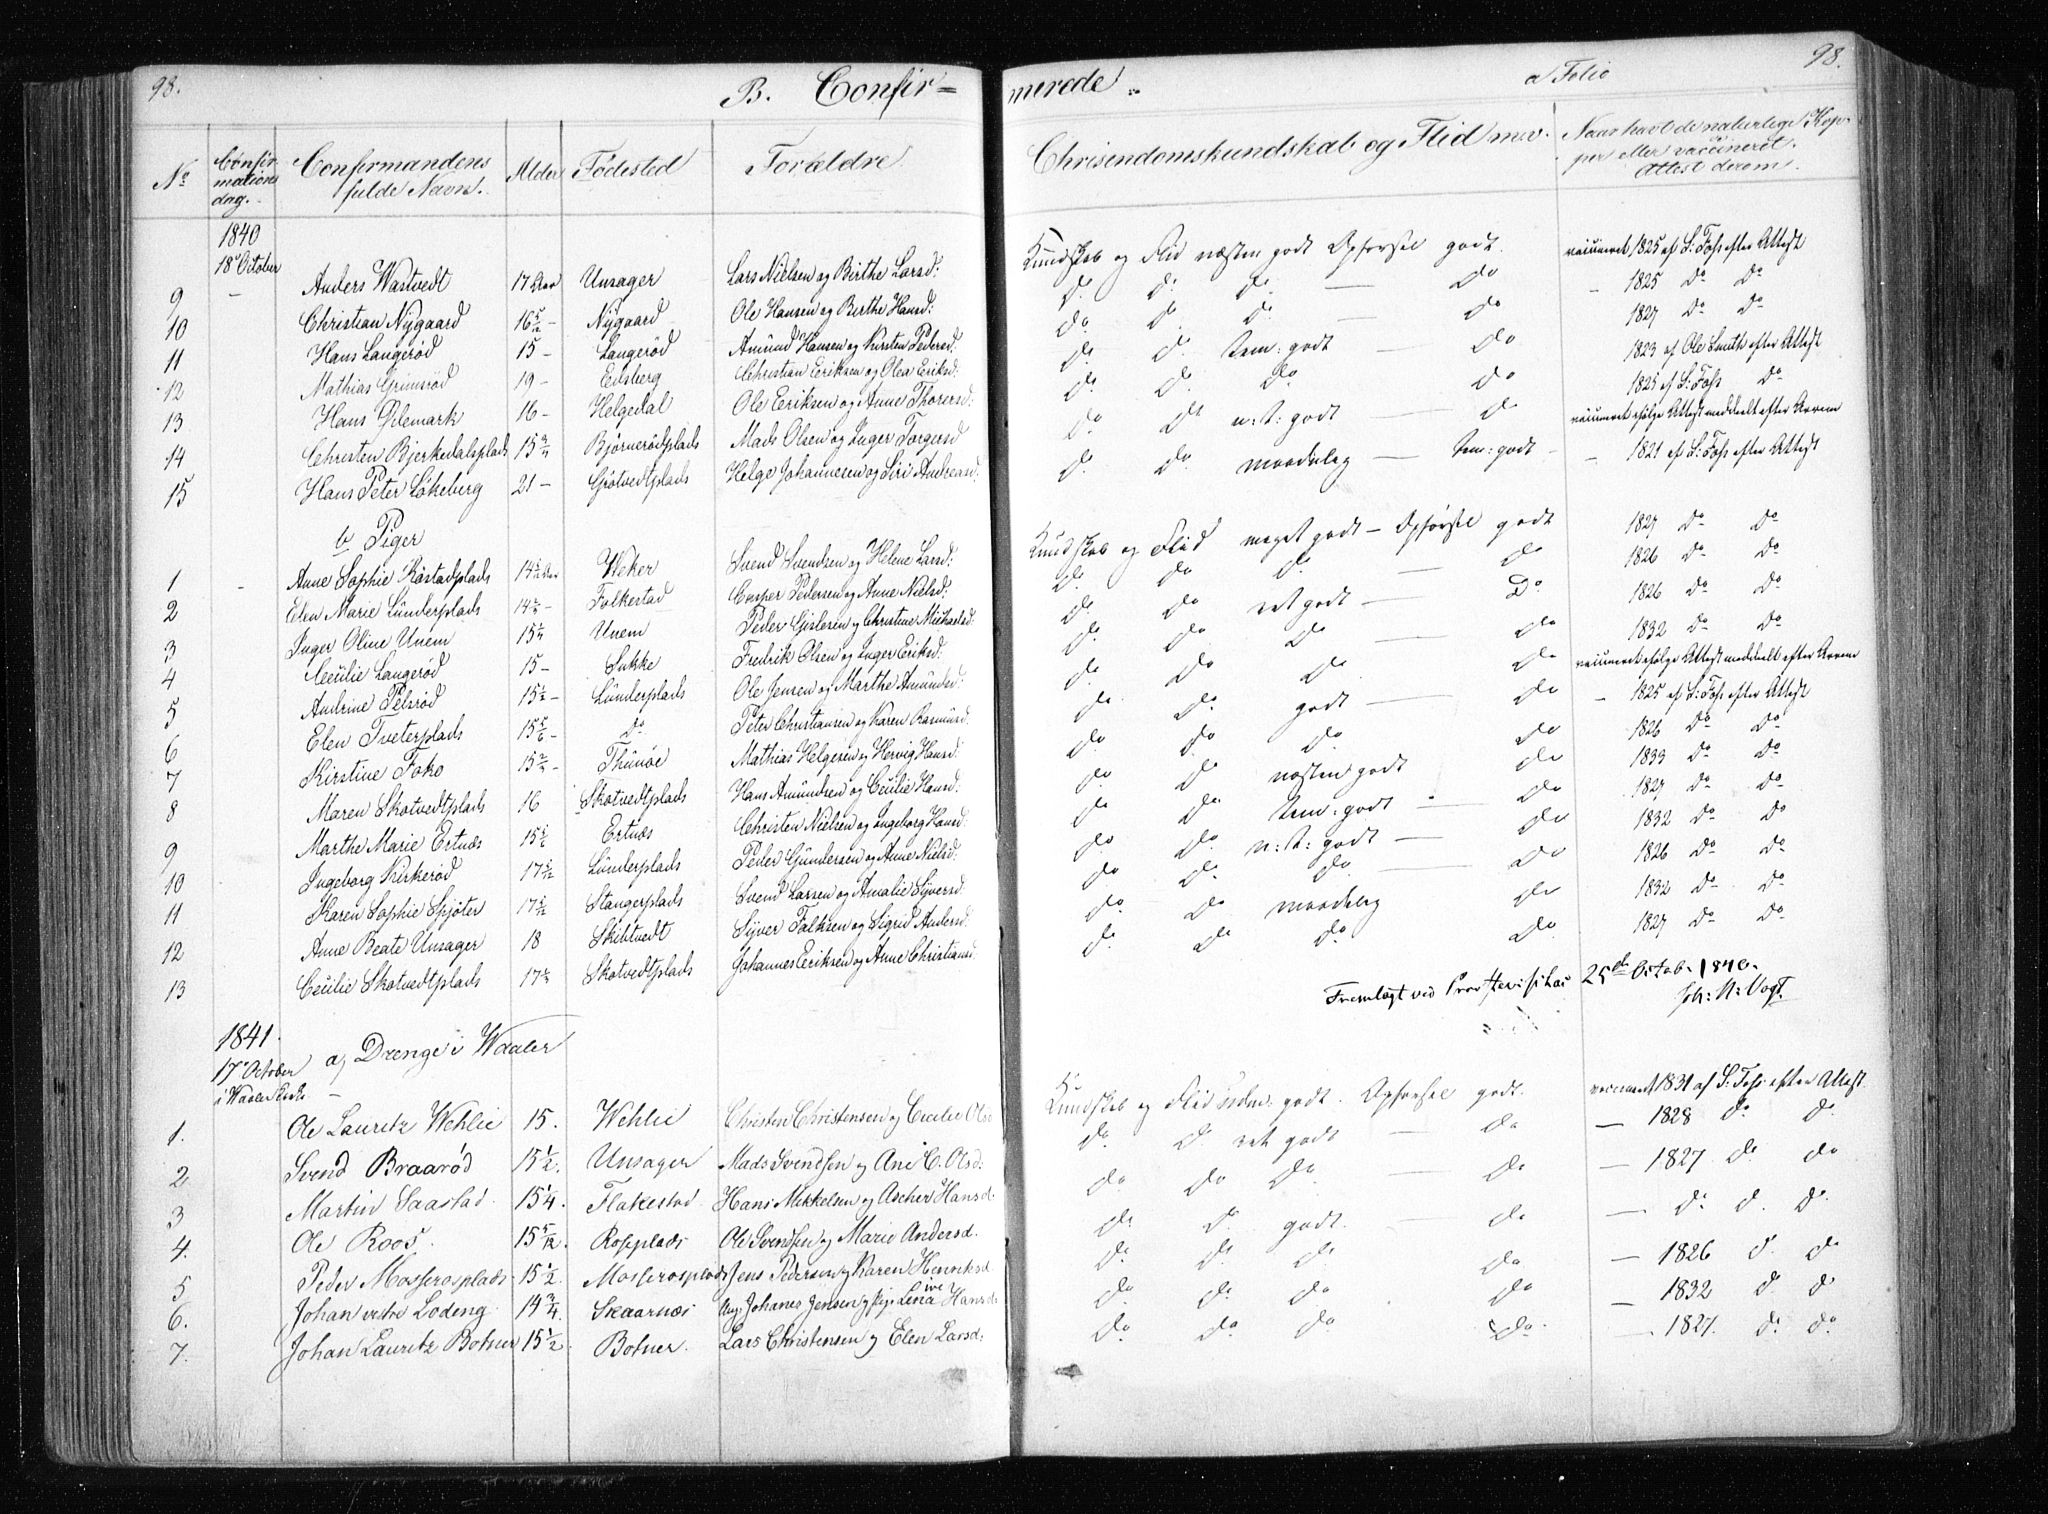 98.
B. Confirmerede.
a Folio
98.
No Confirmations dag. Confirmandens fulde Navn. Alder Fødested Forældre. Chrisendomskundskab og Flid m.v. Naar havt de naturlige Kopper eller vaccineret. Attest derom.
1840
18de October
9 – Anders Wastvedt 17 Aar Unsager Lars Nielsen og Birthe Larsd: Kundskab og Flid næsten godt Opførsel godt. vaccineret 1825 af S: Foss efter Attest
10 Christian Nygaard 16 5/12 – Nygaard Ole Hansen og Berthe Hansd: Do Do Do — Do – 1825 Do Do
11 Hans Langerød 15 – Langerød Amund Hansen og Kirsten Pedersd: Do Do Do — Do 1827 Do Do
12 Mathias Grimsrød 19 – Eidsberg Christian Eriksen og Olea Eriksd: Do Do tem: godt — Do 1823 af Ole Smith efter Attest
13 Hans Glemark 16 – Helgedal Ole Eriksen og Anne Thorersd: Do Do Do Do 1825 af S: Foss Do
14 Christen Bjerkedalsplads 15 3/4 Bjørnerødplads Mads Olsen og Inger Torgersd Do Do n: t: godt — Do vaccineret ifølge Attest meddeelt efter
15 Hans Peter Løkeberg 21 – Grötvedtplads Helge Johannesen og Siri Andreasd: Do Do maadelig — tem: godt – – 1821 af S: Foss efter Attest
b. Piger
1 – Anne Sophie Röstadplads 14 1/2 Aar Weker Svend Svendsen og Helene Larsd: Kundskab og Flid meget godt – Opførsel godt 1827 Do Do
2 Elen Marie Lünderplads Folkestad Casper Pedersen og Anne Nielsd: Do Do Do — Do 1826 Do Do
3 Inger Oline Unem 15 1/4 Unem Peder Gislesen og Christine Michaelsd: Do Do ret godt — Do 1826 Do Do
4 Cecilie Langerød 15 – Sukke Fredrik Olsen og Inger Eriksd: Do Do Do — Do 1832 Do Do
5 Andrine Pelsrød 15 1/2 – Lünderplads Ole Jensen og Marthe Amundsd: Do Do Do Do vaccineret ifølge Attest meddeelt efter
6 Elen Tveterplads 15 5/6 – Do Peter Christiansen og Karen Rasmusd. Do Do godt — Do – 1825 af S: Foss efter Attest
7 Kirstine Foko Thünöe Mathias Helgesen og Hervig Hansd: Do Do Do Do 1826 Do Do
8 Maren Skotvedtplads 16 Skotvedtplads Hans Amündsen og Cecilie Hansd: Do Do næsten godt Do 1833 Do Do
9 Marthe Marie Ertnæs 15 1/2 Ertnæs Christen Nielsen og Ingeborg Hansd: Do Do tem: godt — Do 1827 Do Do
10 Ingeborg Kirkerød Lünderplads Peder Gundersen og Anne Nielsd: Do Do n: t: godt — Do 1832 Do Do
11 Karen Sophie Spjøter Stangerplads Svend Larsen og Amalie Syversd: Do Do Do — Do 1826 Do Do
12 Anne Beate Unsager 18 Skibtvedt Syver Falksen og Sigrid Andersd: Do Do maadelig Do 1832 Do Do
13 Cecilie Skotvedtplads Skotvedtplads Johannes Eriksen og Anne Christiansd: Do Do Do Do 1827 Do Do
Fremlagt ved Provstevisitas 25de Octob. 1840.
Joh: N: Vogt
1841.
17de October i Waaler Kirke – a, Drenge i Waaler
1. Ole Lauritz Wehlie 15. Wehlie Christen Christensen og Cecilie Olsd Kundskab og Flid tem: godt. Opførsel godt. vaccineret 1831 af S: Foss efter Attest
2. Svend Braarød 15 1/2. Unsager Mads Svendsen og Ane C. Olsd: Do Do ret godt — Do — 1828 Do Do
3 Martin Saastad. 15 1/4. Flakestad Hans Mikkelsen og Ascher Hansd. Do Do Do — Do — 1827 Do Do
4. Ole Roos. 15 5/12. Rosplads Ole Svendsen og Marie Andersd. Do Do godt. — Do — Do Do Do
5 Peder Mosserosplads 15 1/2. Mosserosplads Jens Pedersen og Karen Henriksd Do Do Do Do — 1826 Do Do
6. Johan Lodeng. 14 3/4. Skaarnæs Johanes Jensen og Pige Hansd: Do Do Do Do — 1832 Do Do
7. Johan Lauritz Botner 15 1/2. Botner. Lars Christensen og Elen Larsd: Do Do Do Do. — 1827. Do Do